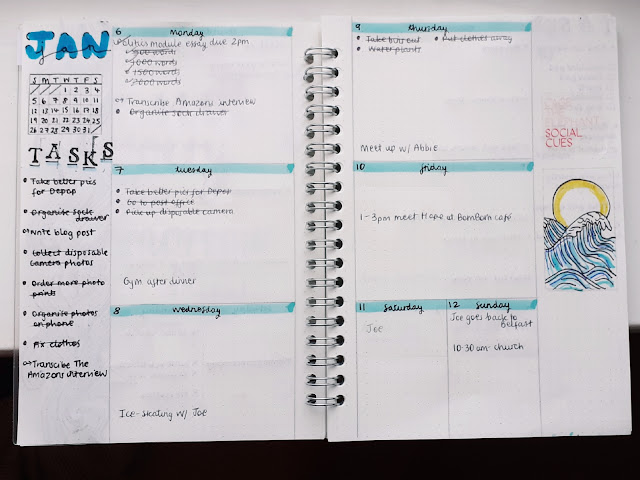 JAN
jan
S M T W T F S
1 2 3 4
5 6 7 8 9 10 11
12 13 14 15 16 17 18
19 20 21 22 23 24 25
26 27 28 29 30 31
TASKS
Take better pics
for Depop
Organise sock
drawer
Write blog post
Collect disposable
camera photos
Order more photo
prints
Organise photos
on phone
Fix clothes
Transcribe The
Amazons interview
6 Monday
module essay due 2pm
500 words
1000 words
1500 words
2000 words
Transcribe Amazons interview
Organise sock drawer
7 tuesday
Take better pics for Depop
Go to post office
Pick up disposable camera
Gym after dinner
8 Wednesday
Ice-skating w/ Joe
9 thursday
Take bins out
Put clothes away
Water plants
Meet up w/ Abbie
10 friday
1-3pm meet Hope at BomBom café
11 saturday
Joe
12 sunday
Joe goes back to
Belfast
10:30am church
SOCIAL
CUES